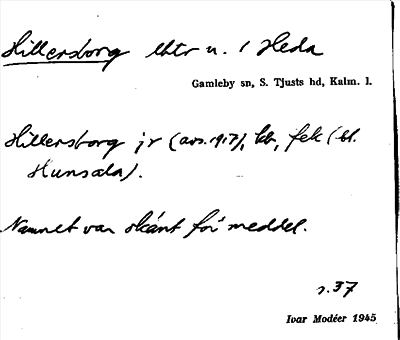 Hillersborg lhtr u. 1 Heda
Gamleby sn, S. Tjusts hd, Kalm. l.
Hillersborg jr (avs. 1917), kb, fek (bl.
Hunsala).
Namnet var skänt för meddel.
s. 37
Ivar Modéer 1945